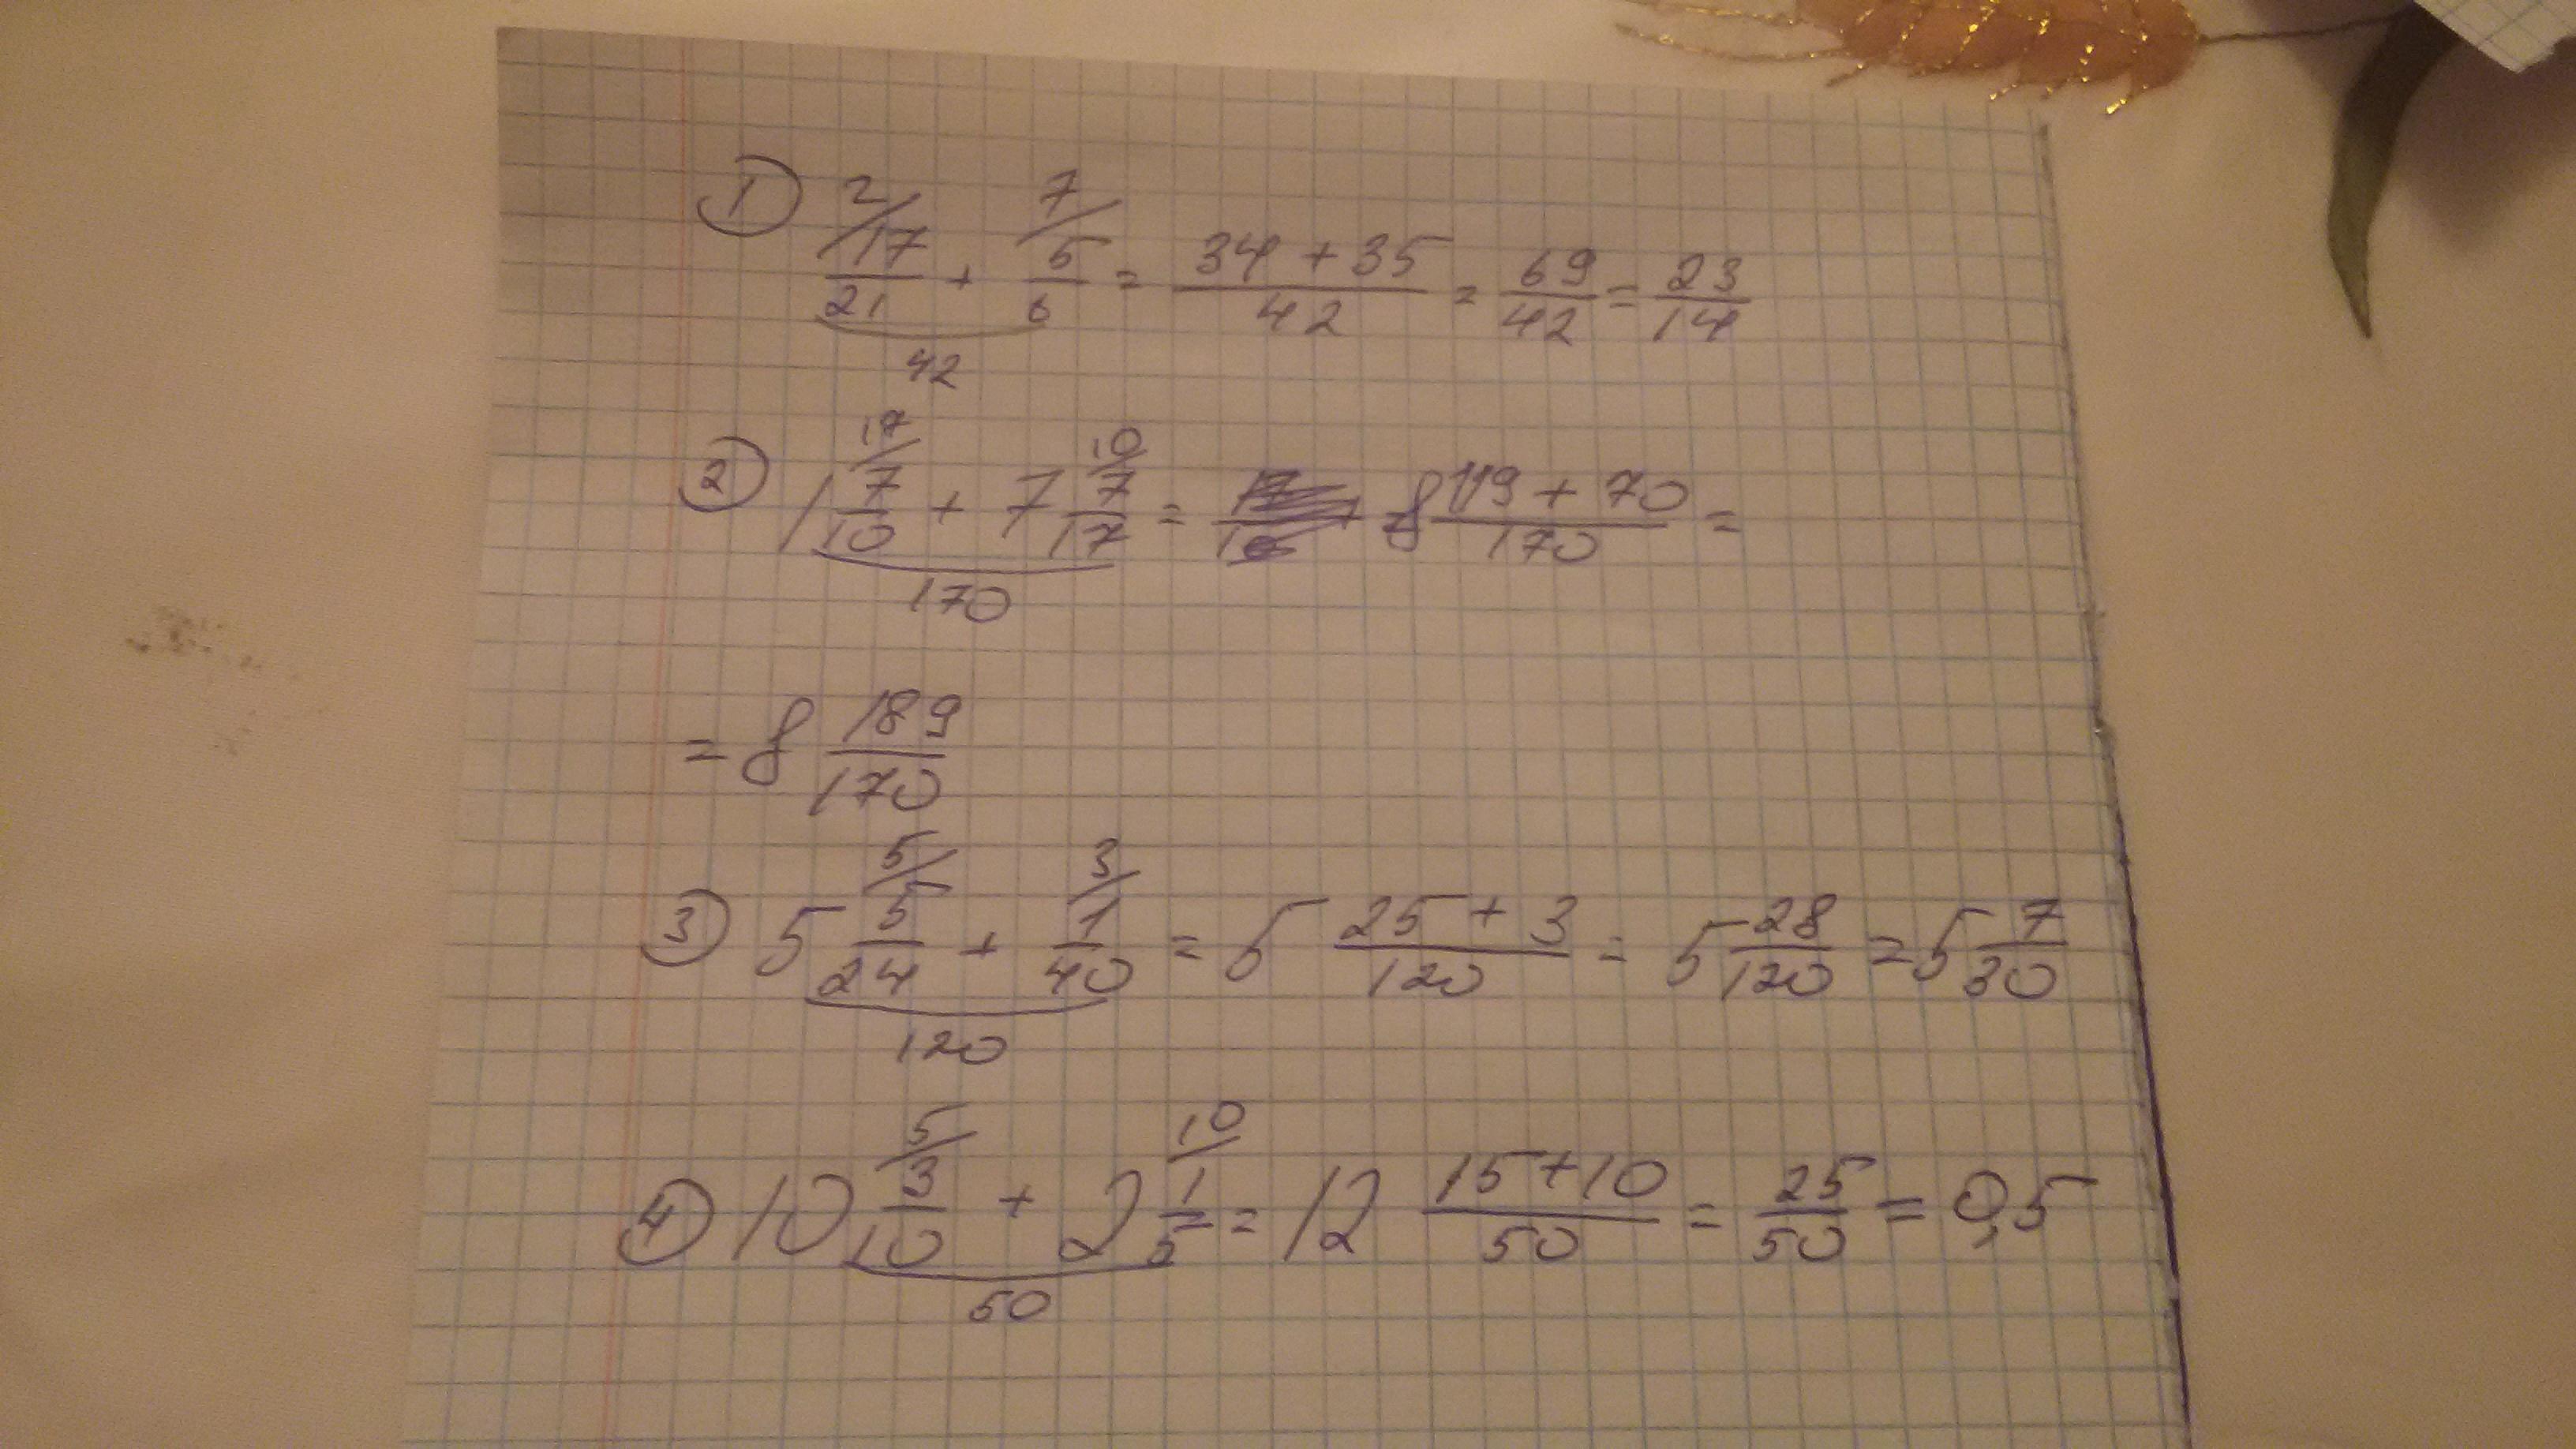 ① 2/ 17/21 + 7/ 5/6 = (34 + 35)/42 = 69/42 = 23/14
42
② 1 17/ 7/10 + 7 10/ 7/17 = 8 (119 + 70)/170 =
170
= 8 189/170
③ 5 5/ 5/24 + 3/ 1/40 = 5 (25 + 3)/120 = 5 28/120 = 5 7/30
120
④ 10 5/ 3/10 + 2 10/ 1/5 = 12 (15+10)/50 = 25/50 = 0,5
50